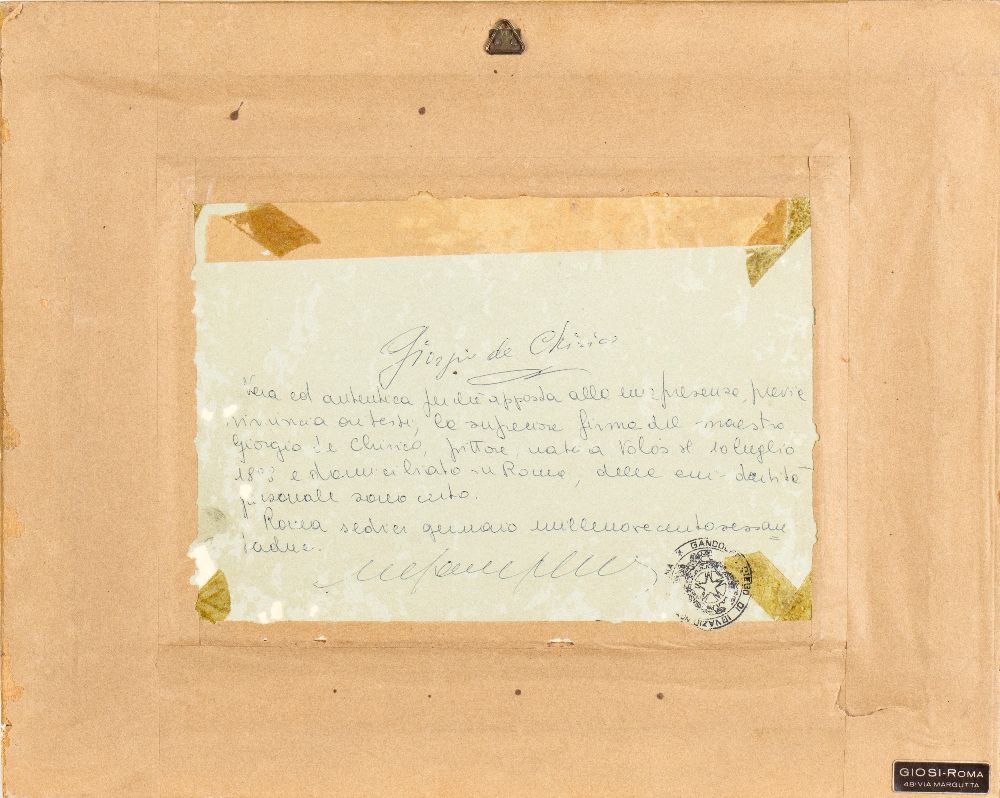 Giorgio de Chirico
Vera ed autentica perchè apposta alla mia presenza, previa
rinuncia ai testi, la superiore firma del maestro
Giorgio de Chirico, pittore, nato a Volos il 10 luglio
1888 e domiciliato in Roma, della cui identità
personale sono certo.
Roma sedici gennaio millenovecentosessan
tadue.
GANDOLFO DIEGO DI IGNAZIO
GIOSI-ROMA
49·VIA MARGUTTA